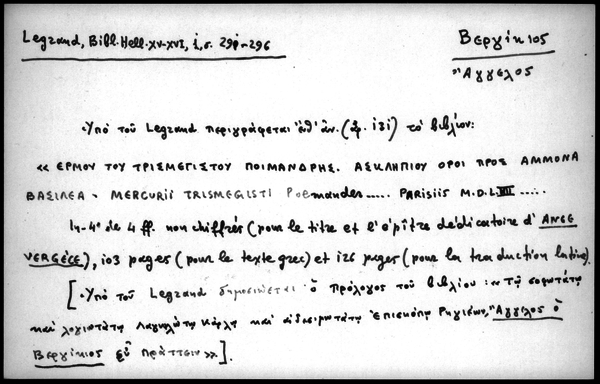 Legrand, Bibl. Hell. XV-XVI, i, σ. 291-296
Βεργίκιος
Ἄγγελος
Ὑπὸ τοῦ Legrand περιγράφεται ἐνθ' ἀν. (ἀρ. 131) τὸ βιβλίον:
« ΕΡΜΟΥ ΤΟΥ ΤΡΙΣΜΕΓΙΣΤΟΥ ΠΟΙΜΑΝΔΡΗΣ. ΑΣΚΛΗΠΙΟΥ ΟΡΟΙ ΠΡΟΣ ΑΜΜΟΝΑ
ΒΑΣΙΛΕΑ - MERCURII TRISMEGISTI Poemander..... PARISIIS M.D.LIIII .....
In-4º de 4 ff. non chiffrés (pour le titre et l'épître dédicatoire d'ANGE
VERGÈCE), 103 pages (pour le texte grec) et 126 pages (pour la traduction latine).
[Ὑπὸ τοῦ Legrand δημοσιεύεται ὁ πρόλογος τοῦ βιβλίου: «Τῷ σοφωτάτῳ
καὶ λογιωτάτῳ Λαγκηλώτῳ Κάρλῃ καὶ αἰδεσιμωτάτῳ ἐπισκόπῳ Ῥηγιέων, Ἄγγελος ὁ
Βεργίκιος εὖ πράττειν»].